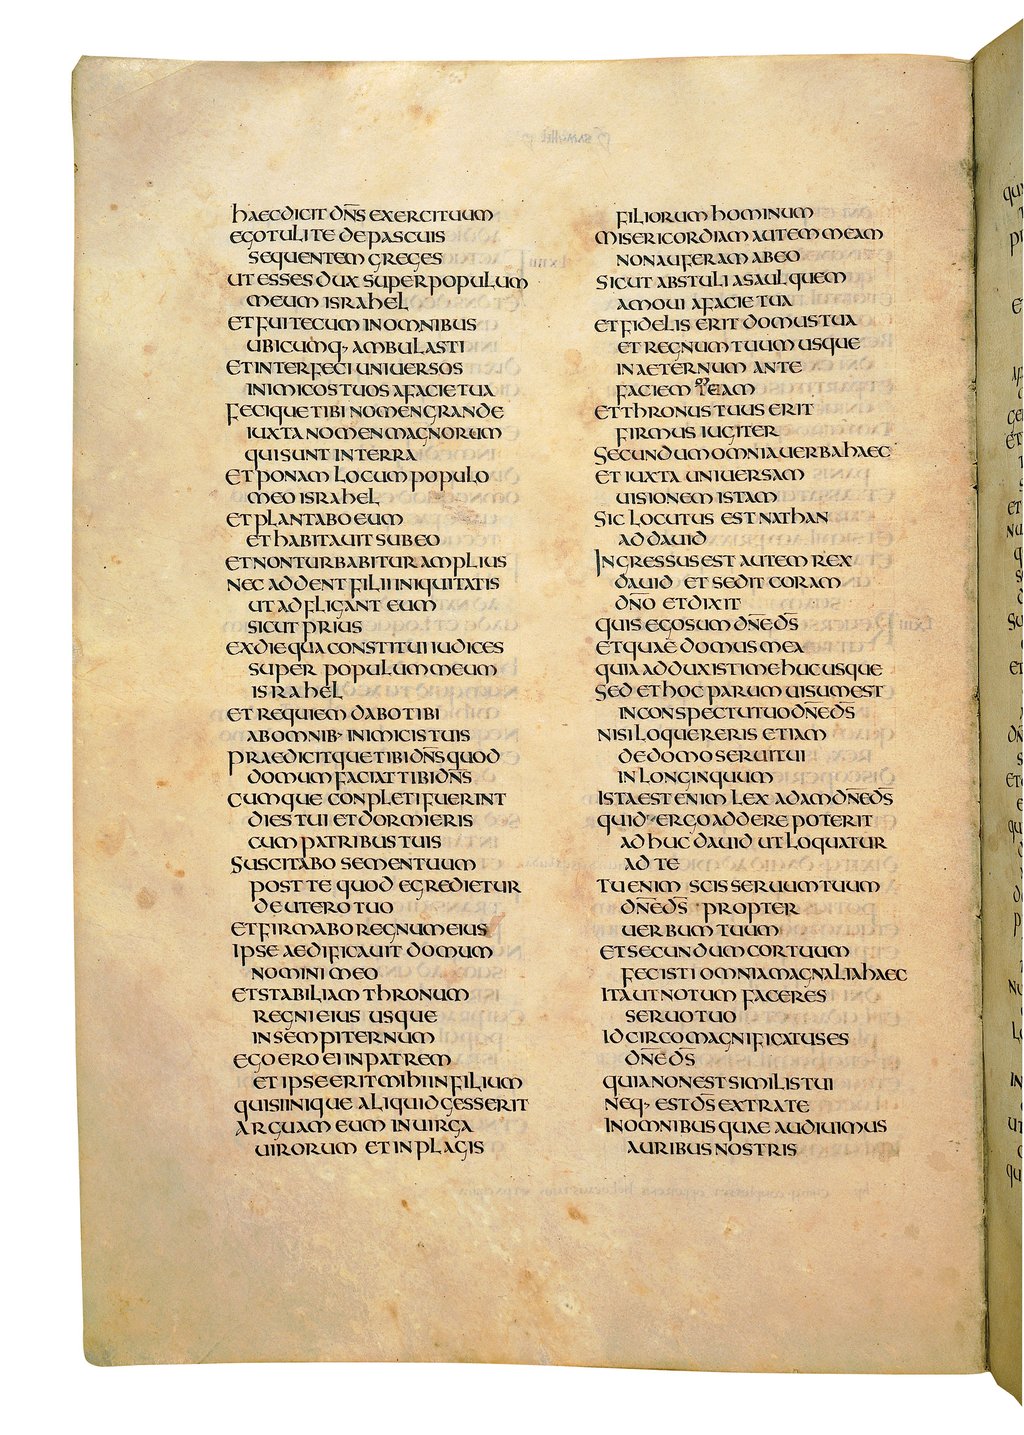 haec dicit dn̄s exercituum
ego tuli te de pascuis
sequentem greges
ut esses dux super populum
meum israhel
et fui tecum in omnibus
ubicumq· ambulasti
et interfeci universos
inimicos tuos a facie tua
fecique tibi nomen grande
iuxta nomen magnorum
qui sunt in terra
et ponam locum populo
meo israhel
et plantabo eum
et habitavit sub eo
et non turbabitur amplius
nec addent filii iniquitatis
ut adfligant eum
sicut prius
ex die qua constitui iudices
super populum meum
israhel
et requiem dabo tibi
ab omnib· inimicis tuis
praedicitque tibi dn̄s quod
domum faciat tibi dn̄s
cumque conpleti fuerint
dies tui et dormieris
cum patribus tuis
suscitabo semen tuum
post te quod egredietur
de utero tuo
et firmabo regnum eius
ipse aedificavit domum
nomini meo
et stabiliam thronum
regni eius usque
in sempiternum
ego ero ei in patrem
et ipse erit mihi in filium
qui si inique aliquid gesserit
arguam eum in virga
virorum et in plagis
filiorum hominum
misericordiam autem meam
non auferam ab eo
sicut abstuli a saul quem
amovi a facie tua
et fidelis erit domus tua
et regnum tuum usque
in aeternum ante
faciem eam
et thronus tuus erit
firmus iugiter
secundum omnia verba haec
et iuxta universam
visionem istam
sic locutus est nathan
ad david
ingressus est autem rex
david et sedit coram
dn̄o et dixit
quis ego sum dn̄e ds̄
et quae domus mea
quia adduxisti me hucusque
sed et hoc parum visum est
in conspectu tuo dn̄e ds̄
nisi loquereris etiam
de domo servi tui
in longinquum
ista est enim lex adam dn̄e ds̄
quid ergo addere poterit
adhuc david ut loquatur
ad te
tu enim scis servum tuum
dn̄e ds̄ propter
verbum tuum
et secundum cor tuum
fecisti omnia magnalia haec
ita ut notum faceres
servo tuo
idcirco magnificatus es
dn̄e ds̄
quia non est similis tui
neq· est ds̄ extra te
in omnibus quae audivimus
auribus nostris